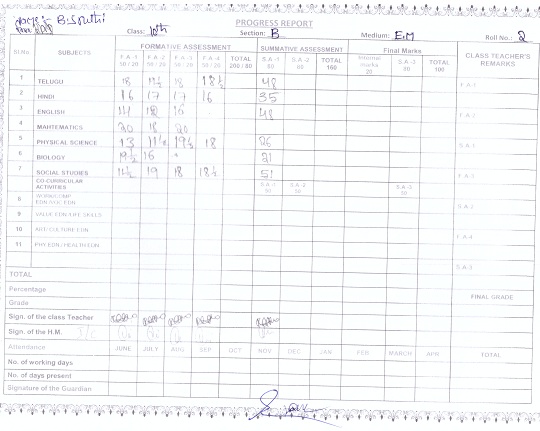 PROGRESS REPORT
Name: B. Sruthi
Class: 10th Section: B Medium: E.M Roll No.: 2
Sl.No SUBJECTS FORMATIVE ASSESSMENT SUMMATIVE ASSESSMENT Final Marks CLASS TEACHER'S REMARKS
F.A-1 50 / 20 F.A-2 50 / 20 F.A-3 50 / 20 F.A-4 50 / 20 TOTAL 200 / 80 S.A-1 80 S.A-2 80 TOTAL 160 Internal marks 20 S.A-3 80 TOTAL 100
1 TELUGU 18 19½ 18 18½ 48 F.A-1
2 HINDI 16 17 17 16 35
3 ENGLISH 14 18 16 48 F.A-2
4 MAHTEMATICS 20 18 20
5 PHYSICAL SCIENCE 13 11½ 19½ 18 26 S.A-1
6 BIOLOGY 19½ 16 21
7 SOCIAL STUDIES 14½ 19 18 18½ 51 F.A-3
CO-CURRICULAR ACTIVITIES S.A-1 50 S.A-2 50 S.A-3 50
8 S.A-2
9 VALUE EDN/LIFE SKILLS
10 ART/CULTURE EDN F.A-4
11 PHY.EDN / HEALTH EDN
TOTAL S.A-3
Percentage
Grade FINAL GRADE
Sign. of the class Teacher
Sign. of the H.M.
Attendance JUNE JULY AUG SEP OCT NOV DEC JAN FEB MARCH APR TOTAL
No. of working days
No. of days present
Signature of the Guardian